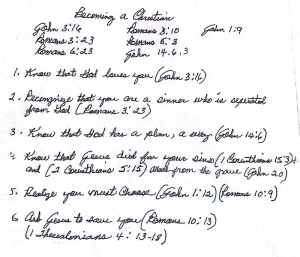 Becoming a Christian
John 3:16 Romans 3:10 John 1:9
Romans 3:23 Romans 5:8
Romans 6:23 John 14:6,3
1. Know that God loves you (John 3:16)
2. Recongnize that you are a sinner who is seperated
from God (Romans 3:23)
3. Know that God has a plan, a way (John 14:6)
Know that Jesus died for your sins (1 Corinthians 15:3)4
and (2 Corinthians 5:15) from the grave (John 20)
5. Realize you must Choose (John 1:12) (Romans 10:9)
6. Ask Jesus to save you (Romans 10:13)
(1 Thessalonians 4:13-18)